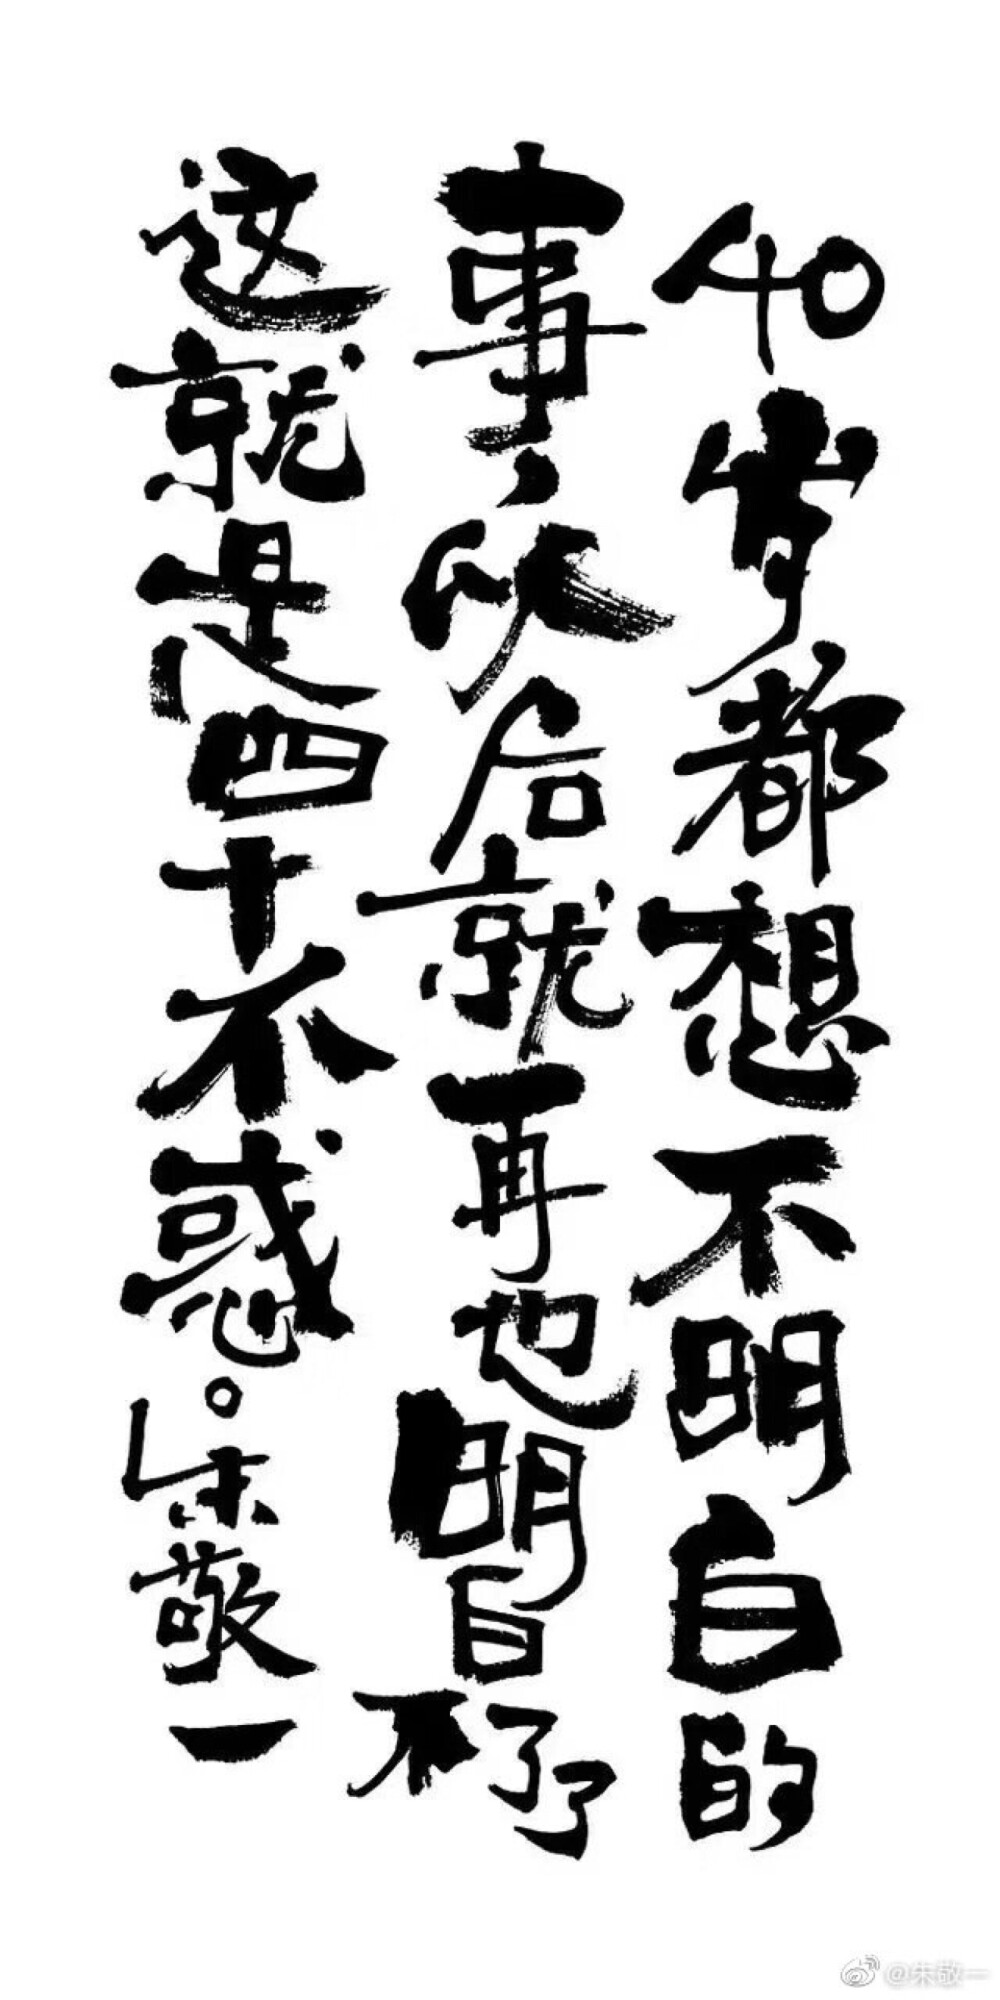 40岁都想不明白的
事，以后就再也明白不了了
这就是四十不惑。朱敬一
@朱敬一